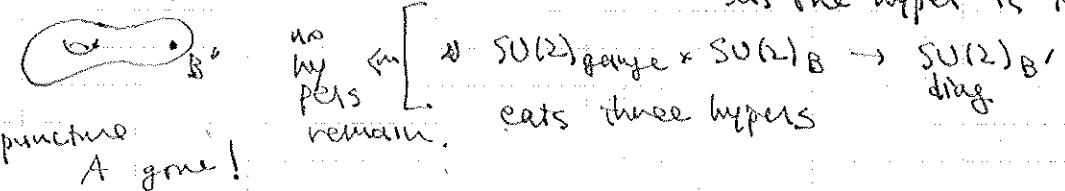 the hyper is
no hypers remain. ⇐ [ ② SU(2)gauge × SU(2)B → SU(2)B′ diag.
eats three hypers
B′
puncture
A gone!